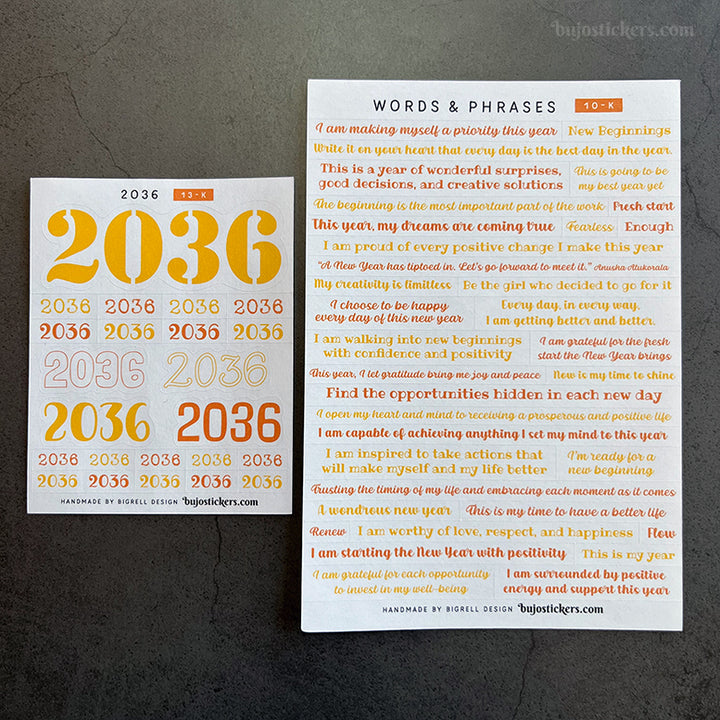 bujostickers.com
2036 13-K
2036
2036 2036 2036 2036
2036 2036 2036 2036
2036 2036
2036 2036
2036 2036 2036 2036 2036
2036 2036 2036 2036 2036
HANDMADE BY BIGRELL DESIGN bujostickers.com
WORDS & PHRASES 10-K
I am making myself a priority this year New Beginnings
Write it on your heart that every day is the best day in the year.
This is a year of wonderful surprises,
good decisions, and creative solutions
This is going to be
my best year yet
The beginning is the most important part of the work Fresh start
This year, my dreams are coming true Fearless Enough
I am proud of every positive change I make this year
"A New Year has tiptoed in. Let's go forward to meet it." Anusha Atukorala
My creativity is limitless Be the girl who decided to go for it
I choose to be happy
every day of this new year
Every day, in every way,
I am getting better and better.
I am walking into new beginnings
with confidence and positivity
I am grateful for the fresh
start the New Year brings
This year, I let gratitude bring me joy and peace Now is my time to shine
Find the opportunities hidden in each new day
I open my heart and mind to receiving a prosperous and positive life
I am capable of achieving anything I set my mind to this year
I am inspired to take actions that
will make myself and my life better
I'm ready for a
new beginning
Trusting the timing of my life and embracing each moment as it comes
A wondrous new year This is my time to have a better life
Renew I am worthy of love, respect, and happiness Flow
I am starting the New Year with positivity This is my year
I am grateful for each opportunity
to invest in my well-being
I am surrounded by positive
energy and support this year
HANDMADE BY BIGRELL DESIGN bujostickers.com